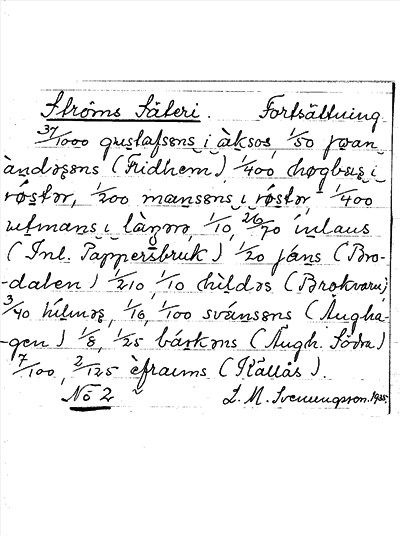 Ströms Säteri. Fortsättning
37/1000 gustafsəns i àksos, 1/50 joan
àndəsəns (Fridhem) 1/400 høgbərs i
røstər, 1/200 mansəns i røstər, 1/400
utmans i làŋərə, 1/10, 26/70 inlaus
(Inl. Pappersbruk) 1/20 jáns (Bro-
dalen) 1/210, 1/10 hìldəs (Brokvarn)
3/40 hílməs, 1/16, 1/100 svánsəns (Ängha-
gen) 1/8, 1/25 báskəns (Ängh. Södra)
7/100, 2/125 èfraims (Kållås).
No 2 L. M. Svenungsson. 1935.